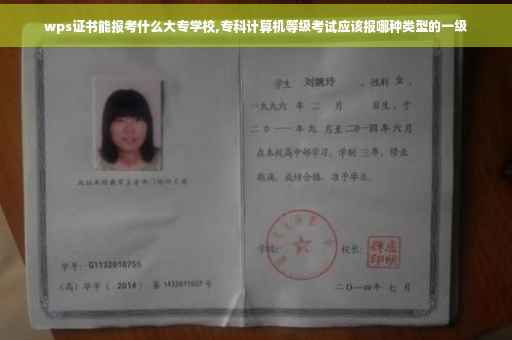 wps证书能报考什么大专学校,专科计算机等级考试应该报哪种类型的一级
学生 刘婉玲 、性别 女 、
一九九六 年 二 月 日生，于
二〇一一年九 月至二〇一四年六月
在本校高中部学习，学制 三年，修业
期满，成绩合格，准予毕业。
学号：G1132010755
学校： 校长：
（高）毕字（ 2014 ）第 1432011027 号
二〇一四年 七 月